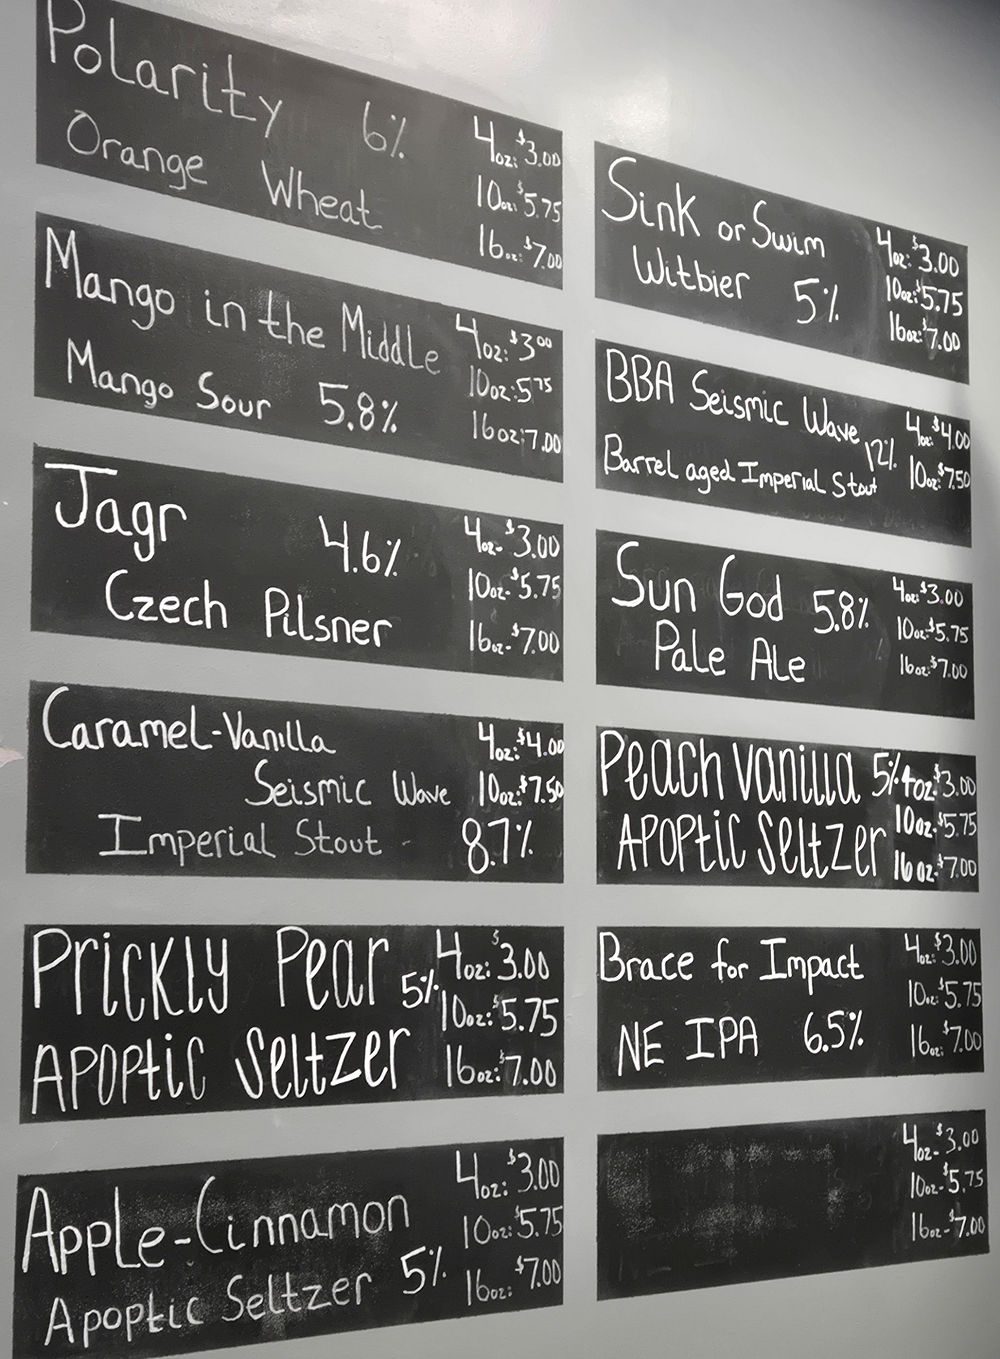 Polarity 6% 4oz: $3.00
Orange Wheat 10oz: $5.75
16oz: $7.00
Mango in the Middle 4oz: $3.00
Mango Sour 5.8% 10oz: 5.75
16oz: 7.00
Jagr 4.6% 4oz- $3.00
Czech Pilsner 10oz- $5.75
16oz- $7.00
Caramel-Vanilla 4oz: $4.00
Seismic Wave 10oz: $7.50
Imperial Stout - 8.7%
Prickly Pear 5% 4oz: $3.00
10oz: $5.75
Apoptic Seltzer 16oz: $7.00
Apple-Cinnamon 4oz: $3.00
10oz: $5.75
Apoptic Seltzer 5% 16oz: $7.00
Sink or Swim 4oz: $3.00
Witbier 5% 10oz: $5.75
16oz: $7.00
BBA Seismic Wave 12% 4oz: $4.00
Barrel aged Imperial Stout 10oz: $7.50
Sun God 5.8% 4oz: $3.00
Pale Ale 10oz: $5.75
16oz: $7.00
Peach Vanilla 5% 4oz: $3.00
Apoptic Seltzer 10oz- $5.75
16oz- $7.00
Brace for Impact 4oz- $3.00
NE IPA 6.5% 10oz- $5.75
16oz- $7.00
4oz- $3.00
10oz- $5.75
16oz- $7.00